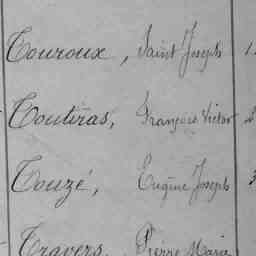 Touroux, Saint Joseph
Toutiras, François Victor
Touzé, Eugène Joseph
Travers, Pierre Marie